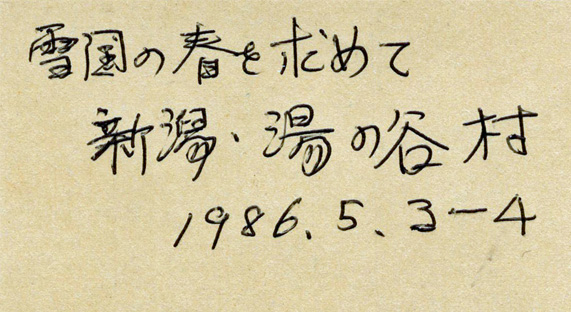 雪国の春を求めて
新潟・湯の谷村
1986.5.3-4